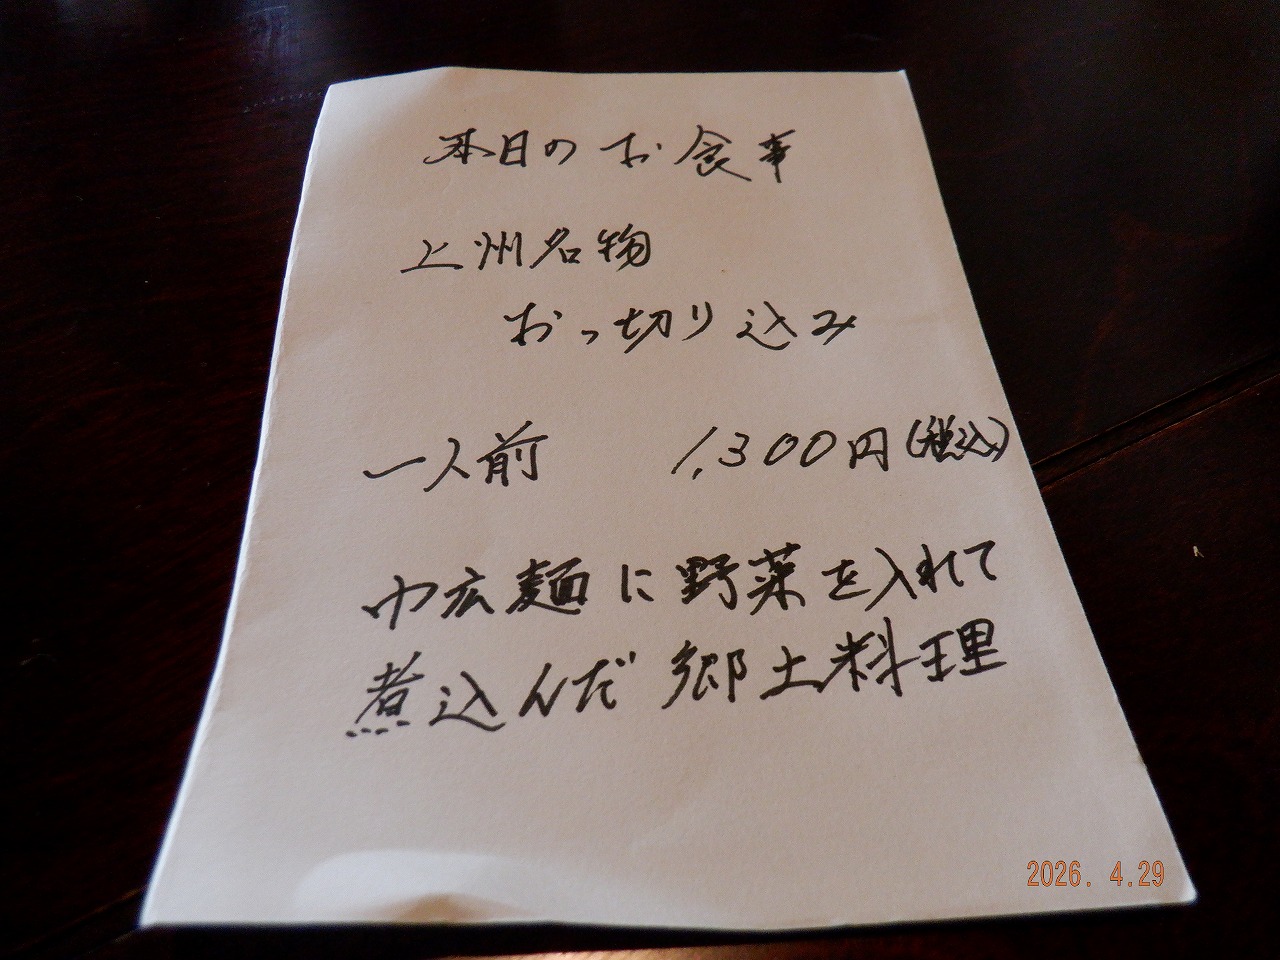 本日のお食事
上州名物
おっ切り込み
一人前 1,300円(税込)
巾広麺に野菜を入れて
煮込んだ郷土料理
2026. 4.29